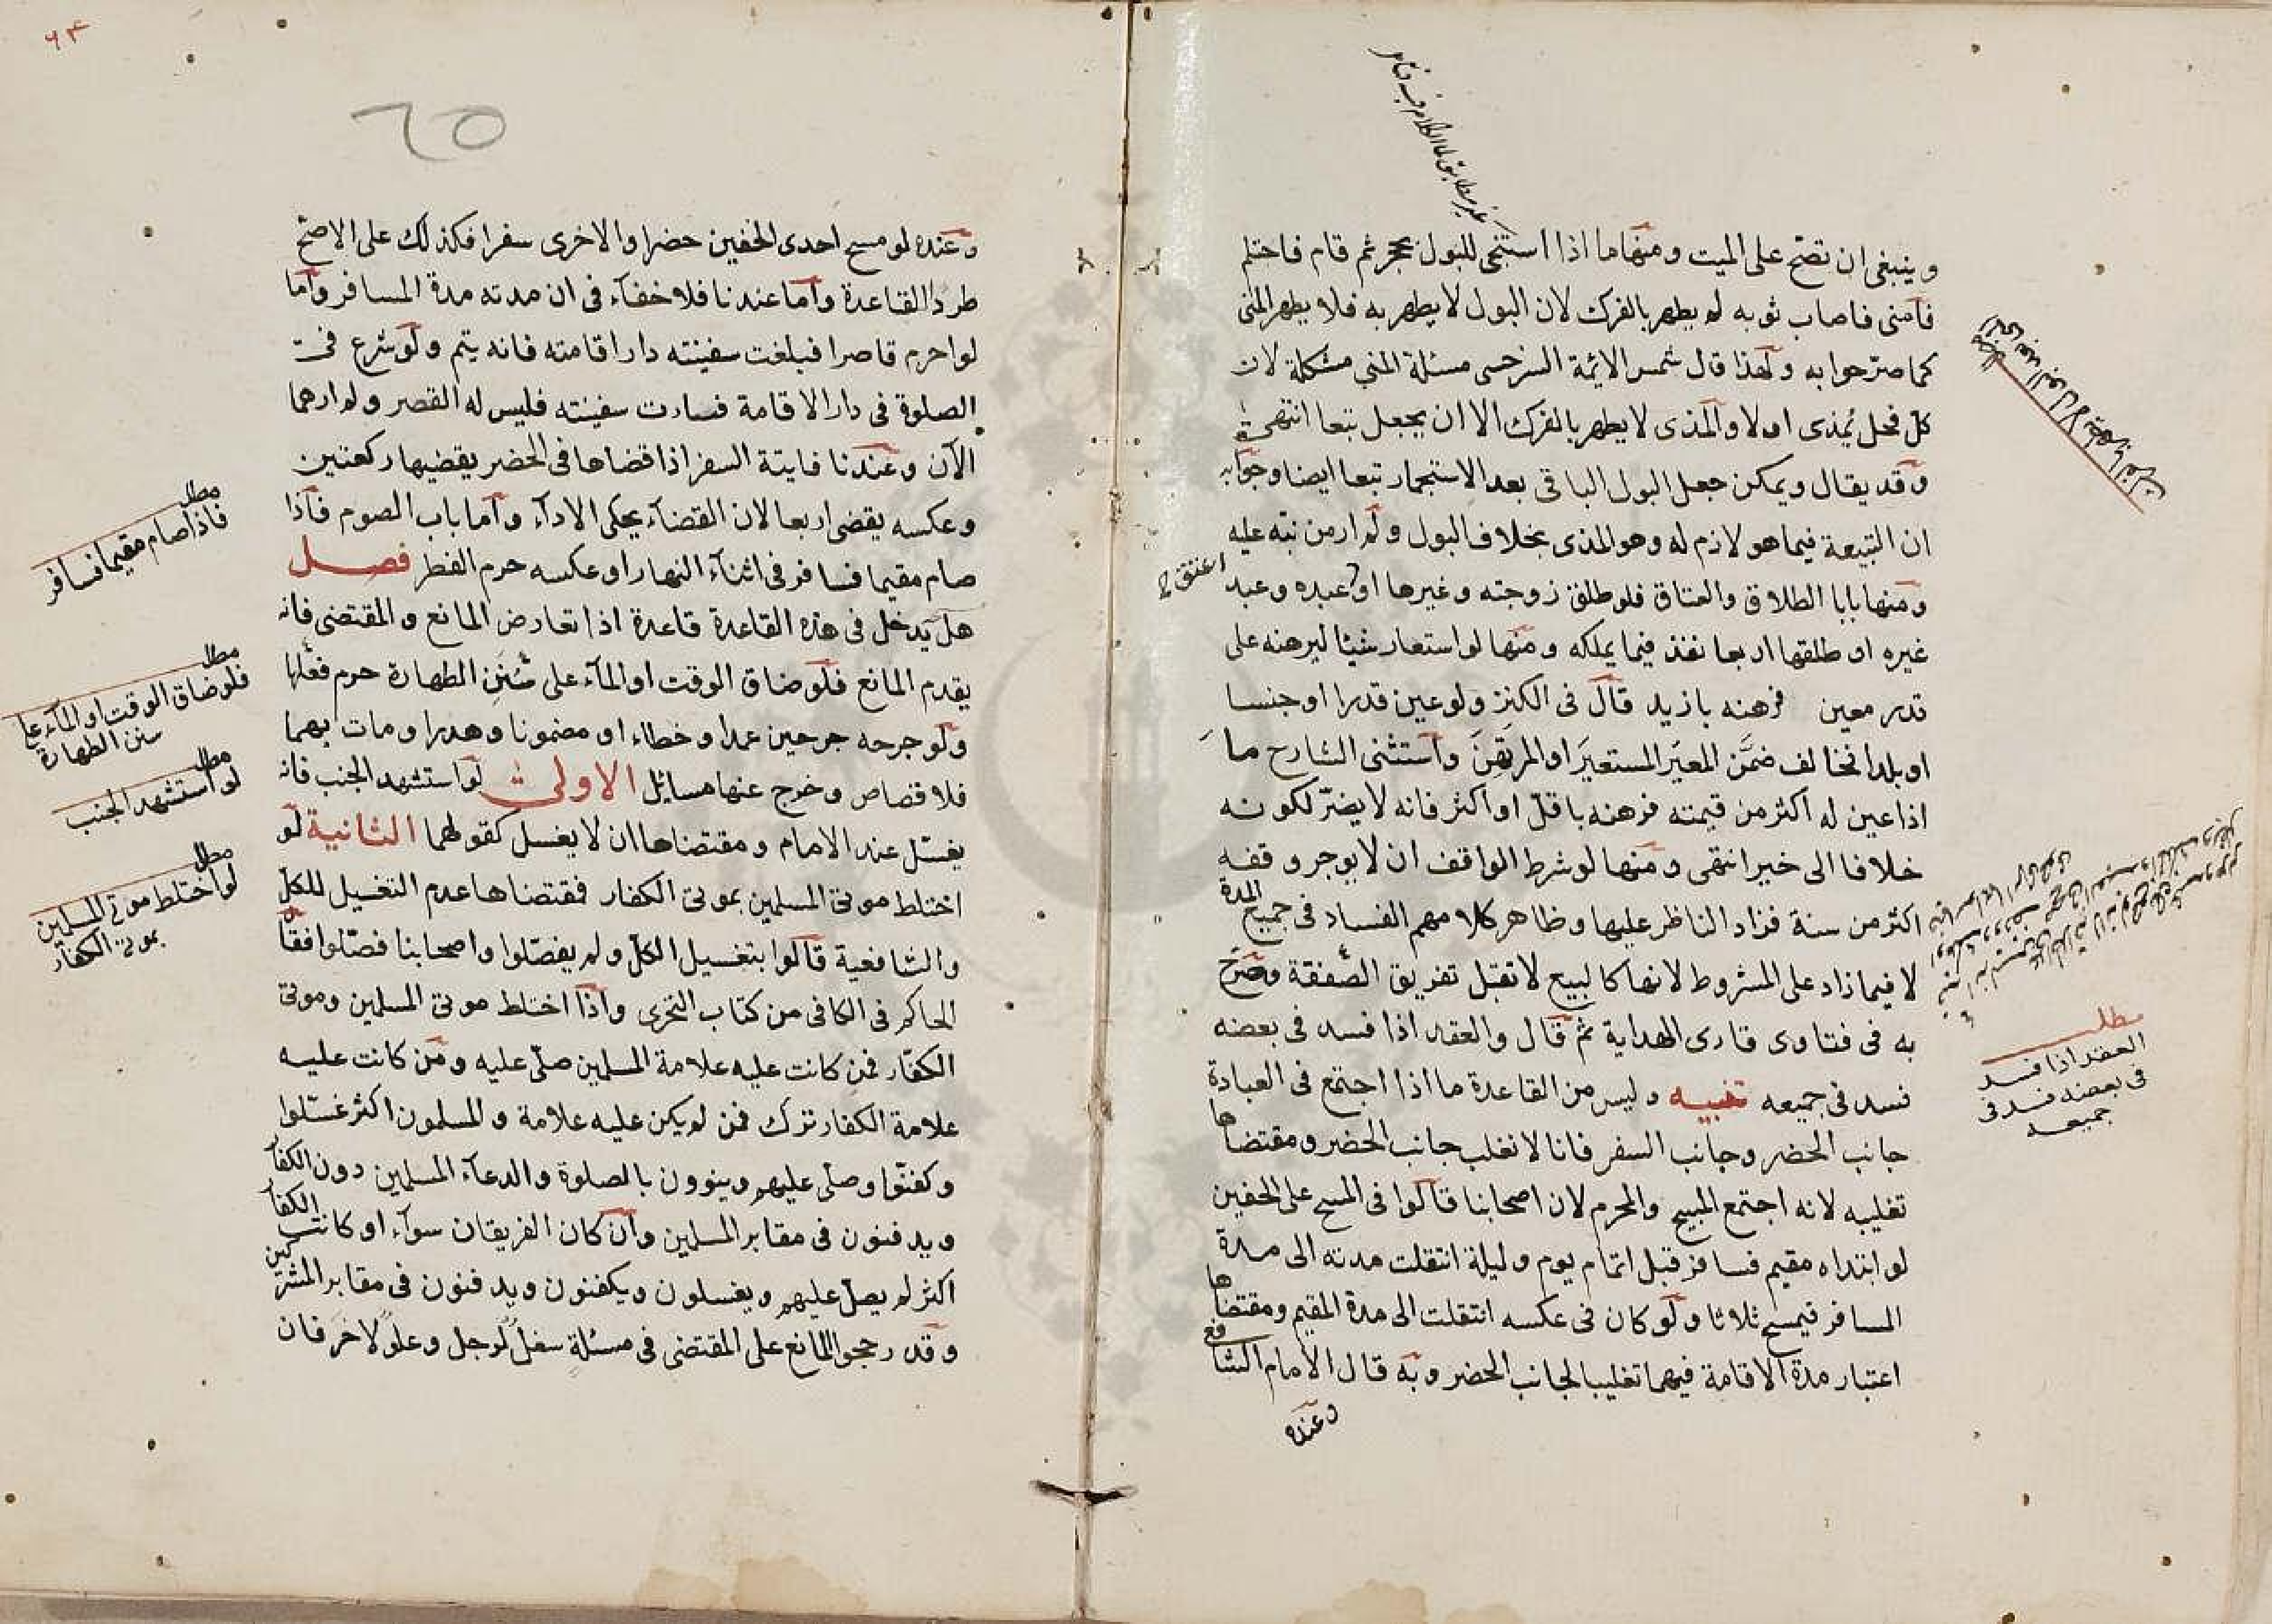 وينبغى ان تصح على الميت ومنها ما اذا استنجى للبول بحجر ثم قام فاحتلم
فامنى فاصاب ثوبه لم يطهر بالفرك لان البول لا يطهر به فلا يطهر المنى
كما صرّحوا به ولهذا قال شمس الائمة السرخسى مسئلة المني مشكلة لان
كلّ فحل يُمذى اولا والمذى لا يطهر بالفرك الا ان يجعل تبعا انتهى
وقد يقال ويمكن جعل البول الباقى بعد الاستجمار تبعا ايضا وجوابه
ان التبيعة فيما هو لازم له وهو المذى بخلاف البول ولم ار من نبّه عليه
ومنها بابا الطلاق والعتاق فلو طلق زوجته وغيرها او عبده وعبد
اعتق
غيره او طلقها اربعا نفذ فيما يملكه ومنها لو استعار شيئا ليرهنه على
قدر معين فرهنه بازيد قال فى الكنز ولو عين قدرا او جنسا
او بلدا فخالف ضمَّن المعيَر المستعيَر او المرتَهِنَ واستثنى الشارح ما
اذا عين له اكثر من قيمته فرهنه باقلّ او اكثر فانه لا يضرّ لكونه
خلافا الى خير انتهى ومنها لو شرط الواقف ان لا يوجر وقفه
اكثر من سنة فزاد الناظر عليها وظاهر كلامهم الفساد فى جميع المدة
لا فيما زاد على المشروط لانها كالبيع لا تقبل تفريق الصّفقة وصَرّح
به فى فتاوى قارى الهداية ثم قال والعقد اذا فسد فى بعضه
فسد فى جميعه تنبيه وليس من القاعدة ما اذا اجتمع فى العبادة
جانب الحضر وجانب السفر فانا لا نغلب جانب الحضر ومقتضاها
تغليبه لانه اجتمع المبيح والمحرم لان اصحابنا قالوا فى المسح على الخفين
لو ابتداه مقيم فسافر قبل اتمام يوم وليلة انتقلت مدته الى مدة
المسافر فيمسح ثلاثا ولو كان فى عكسه انتقلت الى مدة المقيم ومقتضاها
اعتبار مدة الاقامة فيهما تغليبا لجانب الحضر وبه قال الامام الشافع
وعنده
مطلب
العقد اذا فسد
فى بعضه فسد فى
جميعه
٦٤
٦٥
وعنده لو مسح احدى الخفين حضرا والاخرى سفرا فكذلك على الاصحّ
طردا للقاعدة واما عندنا فلا خفآء فى ان مدته مدة المسافر واما
لو احرم قاصرا فبلغت سفينته دار اقامته فانه يتم ولو شرع فى
الصلوة فى دار الاقامة فسارت سفينته فليس له القصر ولم ارهما
الآن وعندنا فايتة السفر اذا قضاها فى الحضر يقضيها ركعتين
وعكسه يقضى اربعا لان القضآء يحكى الادآء واما باب الصوم فاذا
صام مقيما فسافر فى اثنآء النهار او عكسه حرم الفطر فصل
هل يدخل فى هذه القاعدة قاعدة اذا تعارض المانع والمقتضى فانه
يقدم المانع فلو ضاق الوقت او المآء على سُنَنِ الطهارة حرم فعلها
ولو جرحه جرحين عمدا وخطاء او مضمونا وهدرا ومات بهما
فلا قصاص وخرج عنها مسايل الاولى لو استشهد الجنب فانه
يغسّل عند الامام ومقتضاها ان لا يغسل كقولهما الثانية لو
اختلط موتى المسلمين بموتى الكفار فمقتضاها عدم التغسيل للكلّ
والشافعية قالوا بتغسيل الكلّ ولم يفصّلوا واصحابنا فصّلوا فقال
الحاكم فى الكافى من كتاب التحرى واذا اختلط موتى المسلمين وموتى
الكفّار فمن كانت عليه علامة المسلمين صلّى عليه ومن كانت عليه
علامة الكفار ترك فمن لم يكن عليه علامة والمسلمون اكثر غسّلوا
وكفنّوا وصلّى عليهم وينوون بالصلوة والدعآء المسلمين دون الكفار
ويدفنون فى مقابر المسلمين وان كان الفريقان سوآء او كانت الكفار
اكثر لم يصلّ عليهم ويغسلون ويكفنون ويدفنون فى مقابر المشركين
وقد رجحوا المانع على المقتضى فى مسئلة سفل لرجل وعلو لاخر فان
مطلب
فاذا صام مقيما فسافر
مطلب
فلو ضاق الوقت او المآء على
سنن الطهارة
مطلب
لو استشهد الجنب
مطلب
لو اختلط موتى المسلمين
بموتى الكفار